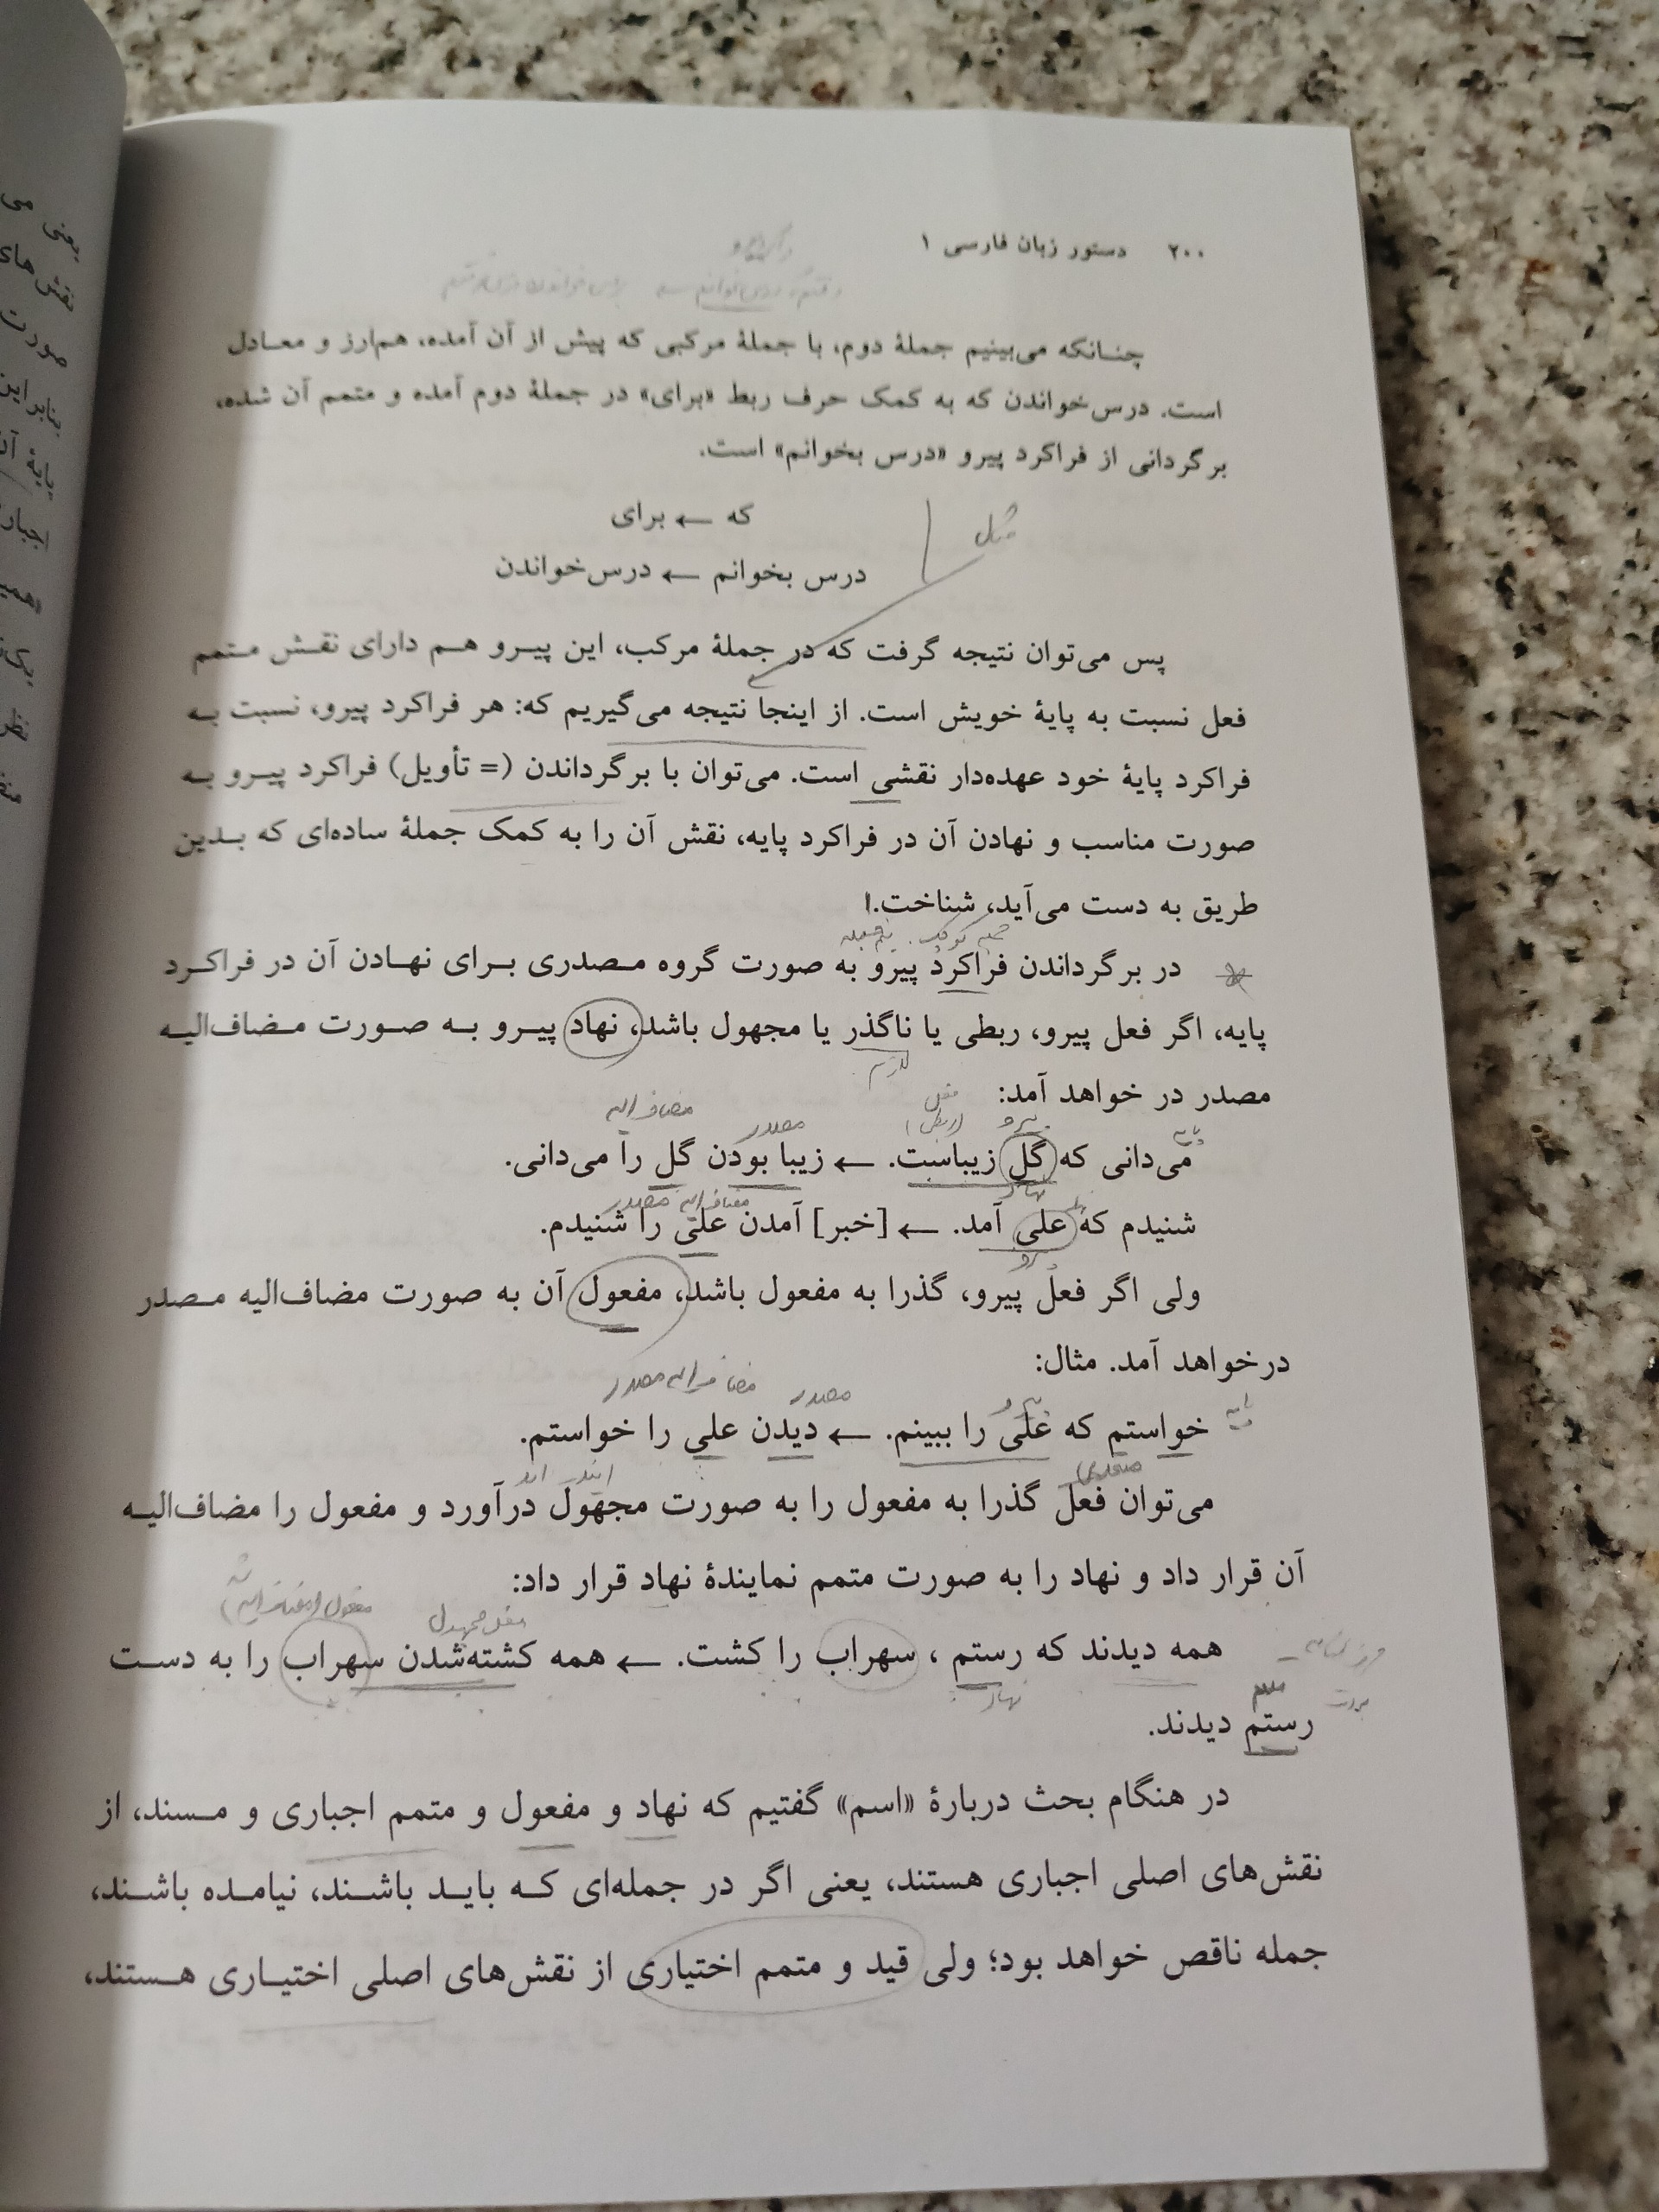 ۲۰۰ دستور زبان فارسی ۱
چنانکه می‌بینیم جملهٔ دوم، با جملهٔ مرکبی که پیش از آن آمده، هم‌ارز و معادل
است. درس‌خواندن که به کمک حرف ربط «برای» در جملهٔ دوم آمده و متمم آن شده،
برگردانی از فراکرد پیرو «درس بخوانم» است.
که ← برای
درس بخوانم ← درس‌خواندن
پس می‌توان نتیجه گرفت که در جملهٔ مرکب، این پیرو هم دارای نقش متمم
فعل نسبت به پایهٔ خویش است. از اینجا نتیجه می‌گیریم که: هر فراکرد پیرو، نسبت به
فراکرد پایهٔ خود عهده‌دار نقشی است. می‌توان با برگرداندن (= تأویل) فراکرد پیرو به
صورت مناسب و نهادن آن در فراکرد پایه، نقش آن را به کمک جملهٔ ساده‌ای که بدین
طریق به دست می‌آید، شناخت.
در برگرداندن فراکرد پیرو به صورت گروه مصدری برای نهادن آن در فراکرد
پایه، اگر فعل پیرو، ربطی یا ناگذر یا مجهول باشد، نهاد پیرو به صورت مضاف‌الیه
لازم
مصدر در خواهد آمد:
پایه پیرو فعل (ربطی) مصدر مضاف الیه
می‌دانی که گل زیباست. ← زیبا بودن گل را می‌دانی.
نهاد مضاف الیه مصدر
شنیدم که علی آمد. ← [خبر] آمدن علی را شنیدم.
ولی اگر فعل پیرو، گذرا به مفعول باشد، مفعول آن به صورت مضاف‌الیه مصدر
درخواهد آمد. مثال:
پایه پیرو مصدر مضاف الیه مصدر
خواستم که علی را ببینم. ← دیدن علی را خواستم.
متعدی
می‌توان فعل گذرا به مفعول را به صورت مجهول درآورد و مفعول را مضاف‌الیه
آن قرار داد و نهاد را به صورت متمم نمایندهٔ نهاد قرار داد:
فعل مجهول مفعول (مضاف الیه)
همه دیدند که رستم ، سهراب را کشت. ← همه کشته‌شدن سهراب را به دست
نهاد متمم
رستم دیدند.
در هنگام بحث دربارهٔ «اسم» گفتیم که نهاد و مفعول و متمم اجباری و مسند، از
نقش‌های اصلی اجباری هستند، یعنی اگر در جمله‌ای که باید باشند، نیامده باشند،
جمله ناقص خواهد بود؛ ولی قید و متمم اختیاری از نقش‌های اصلی اختیاری هستند،